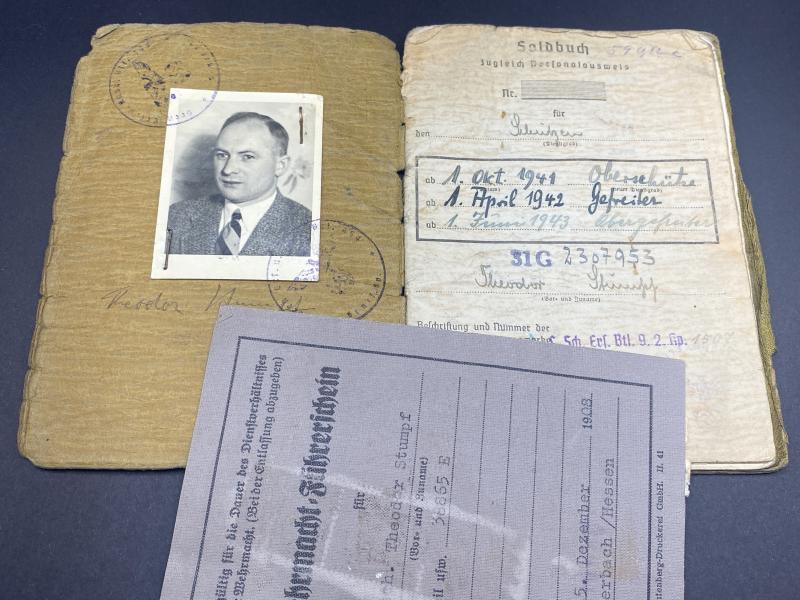 Soldbuch
zugleich Personalausweis
Nr.
für
den Schützen
(Dienstgrad)
ab 1. Okt. 1941 Oberschütze
ab 1. April 1942 Gefreiter
ab 1. Juni 1943 Obergefreiter
31G 2307953
Theodor Stumpf
(Vor- und Zuname)
Beschriftung und Nummer der
Sch. Ers. Btl. 9. 2. Kp.
Theodor Stumpf
gültig für die Dauer des Dienstverhältnisses
Wehrmacht. (Bei der Entlassung abzugeben)
hrmacht-Führerschein
für
h. Theodor Stumpf
(Vor- und Zuname)
il usw. 36865 E
5. Dezember 1908
erbach /Hessen
lenberg-Druckerei GmbH. II. 41